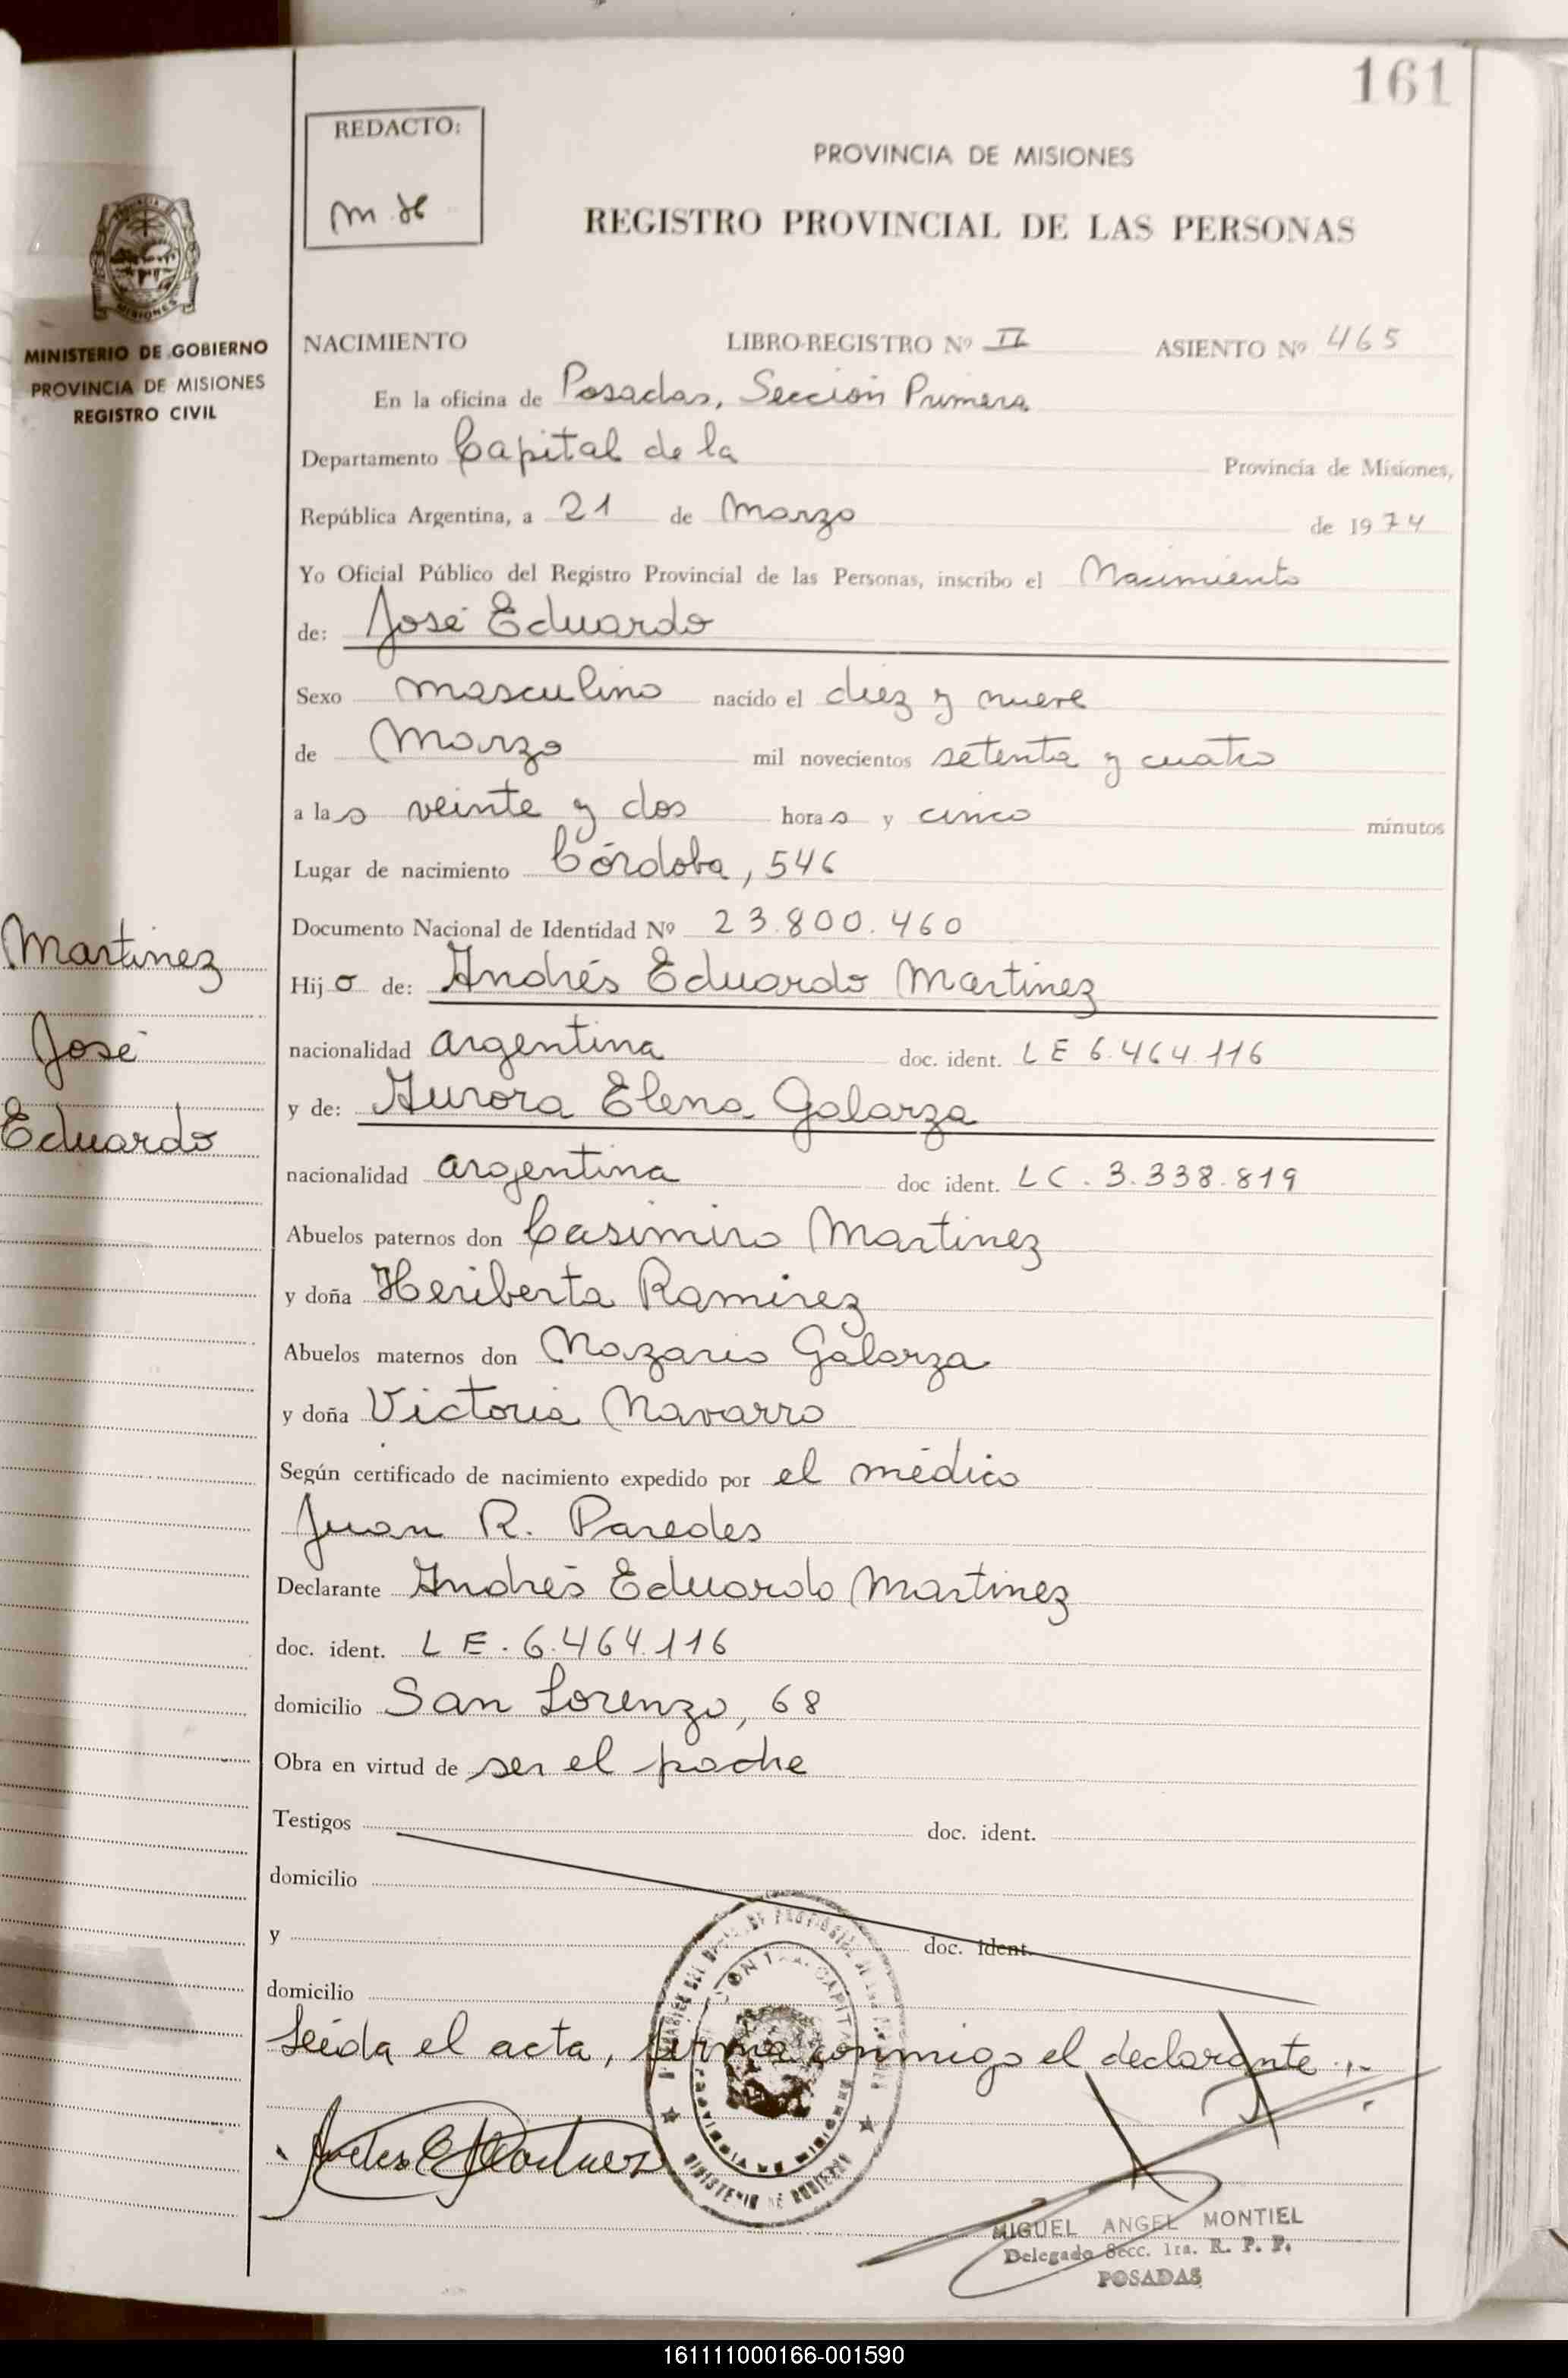 161
REDACTO:
PROVINCIA DE MISIONES
REGISTRO PROVINCIAL DE LAS PERSONAS
MISIONES
MINISTERIO DE GOBIERNO
PROVINCIA DE MISIONES
REGISTRO CIVIL
NACIMIENTO LIBRO-REGISTRO Nº II ASIENTO Nº 465
En la oficina de Posadas, Sección Primera
Departamento Capital de la Provincia de Misiones,
República Argentina, a 21 de Marzo de 1974
Yo Oficial Público del Registro Provincial de las Personas, inscribo el Nacimiento
de: José Eduardo
Sexo masculino nacido el diez y nueve
de Marzo mil novecientos setenta y cuatro
a las veinte y dos horas y cinco minutos
Lugar de nacimiento Córdoba, 546
Documento Nacional de Identidad Nº 23.800.460
Martinez
José
Eduardo
Hijo de: Andrés Eduardo Martinez
nacionalidad argentina doc. ident. LE 6.464.116
y de: Aurora Elena Galarza
nacionalidad argentina doc ident. LC. 3.338.819
Abuelos paternos don Casimiro Martinez
y doña Heriberta Ramirez
Abuelos maternos don Nazario Galarza
y doña Victoria Navarro
Según certificado de nacimiento expedido por el médico
Juan R. Paredes
Declarante Andrés Eduardo Martinez
doc. ident. LE. 6.464.116
domicilio San Lorenzo, 68
Obra en virtud de ser el padre
Testigos doc. ident.
domicilio
y doc. ident.
domicilio
Leída el acta, firma conmigo el declarante.,-
MINISTERIO DE GOBIERNO
MIGUEL ANGEL MONTIEL
Delegado Secc. 1ra. R. P. P.
POSADAS
161111000166-001590